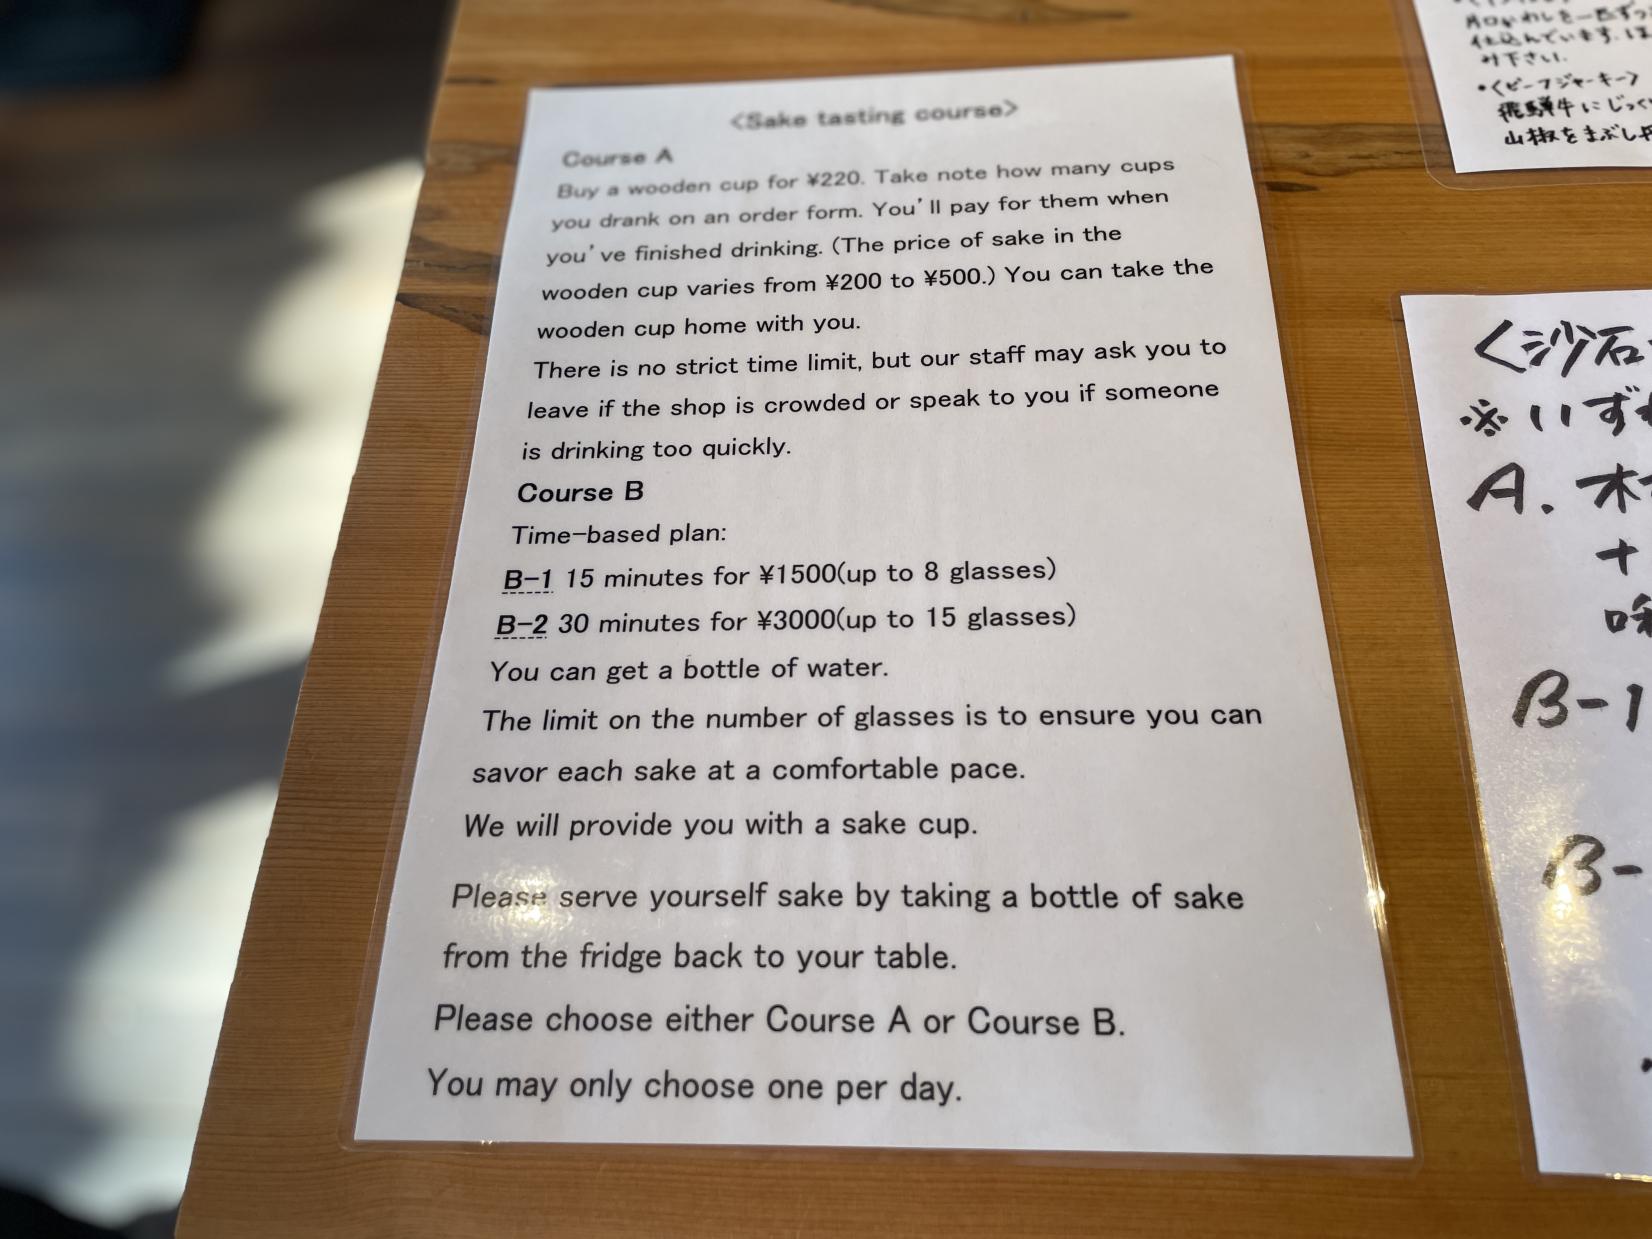 <Sake tasting course>
Course A
Buy a wooden cup for ¥220. Take note how many cups
you drank on an order form. You'll pay for them when
you've finished drinking. (The price of sake in the
wooden cup varies from ¥200 to ¥500.) You can take the
wooden cup home with you.
There is no strict time limit, but our staff may ask you to
leave if the shop is crowded or speak to you if someone
is drinking too quickly.
Course B
Time-based plan:
B-1 15 minutes for ¥1500(up to 8 glasses)
B-2 30 minutes for ¥3000(up to 15 glasses)
You can get a bottle of water.
The limit on the number of glasses is to ensure you can
savor each sake at a comfortable pace.
We will provide you with a sake cup.
Please serve yourself sake by taking a bottle of sake
from the fridge back to your table.
Please choose either Course A or Course B.
You may only choose one per day.
片口いわしを一匹ずつ
仕込んでいます。ほ
み下さい.
・〈ビーフジャーキー〉
飛騨牛にじっく
山椒をまぶし
〈沙石
※いず
A. 木
+
B-1
B-